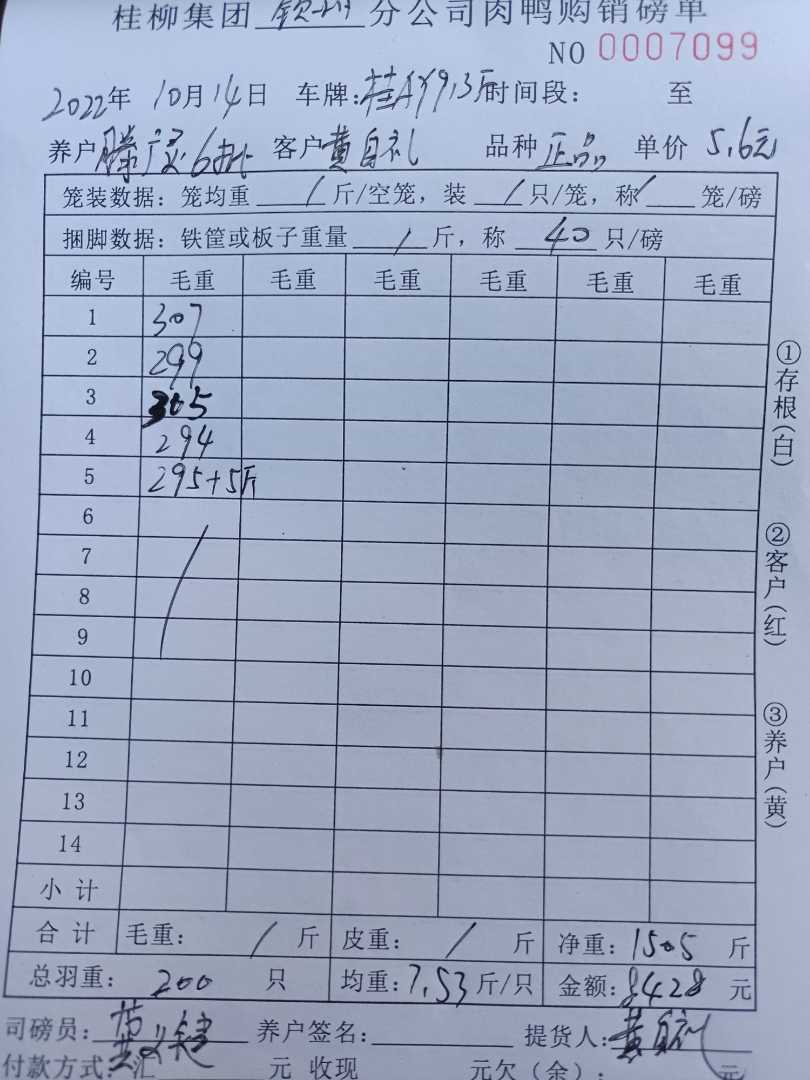 桂柳集团 钦州 分公司肉鸭购销磅单
NO 0007099
2022年 10月14日 车牌: 时间段: 至
养户 滕 6批 客户 黄自礼 品种 正品 单价 5.6元
笼装数据: 笼均重 / 斤/空笼, 装 / 只/笼, 称 / 笼/磅
捆脚数据: 铁筐或板子重量 / 斤, 称 40 只/磅
编号 毛重 毛重 毛重 毛重 毛重 毛重
1 307
2 299
3 305
4 294
5 295+5斤
6
7
8
9
10
11
12
13
14
小计
合计 毛重: / 斤 皮重: / 斤 净重: 1505 斤
总羽重: 200 只 均重: 7.53 斤/只 金额: 8428 元
司磅员: 养户签名: 提货人: 黄自礼
付款方式: 汇 元 收现 元欠(余): 元
①存根(白)
②客户(红)
③养户(黄)